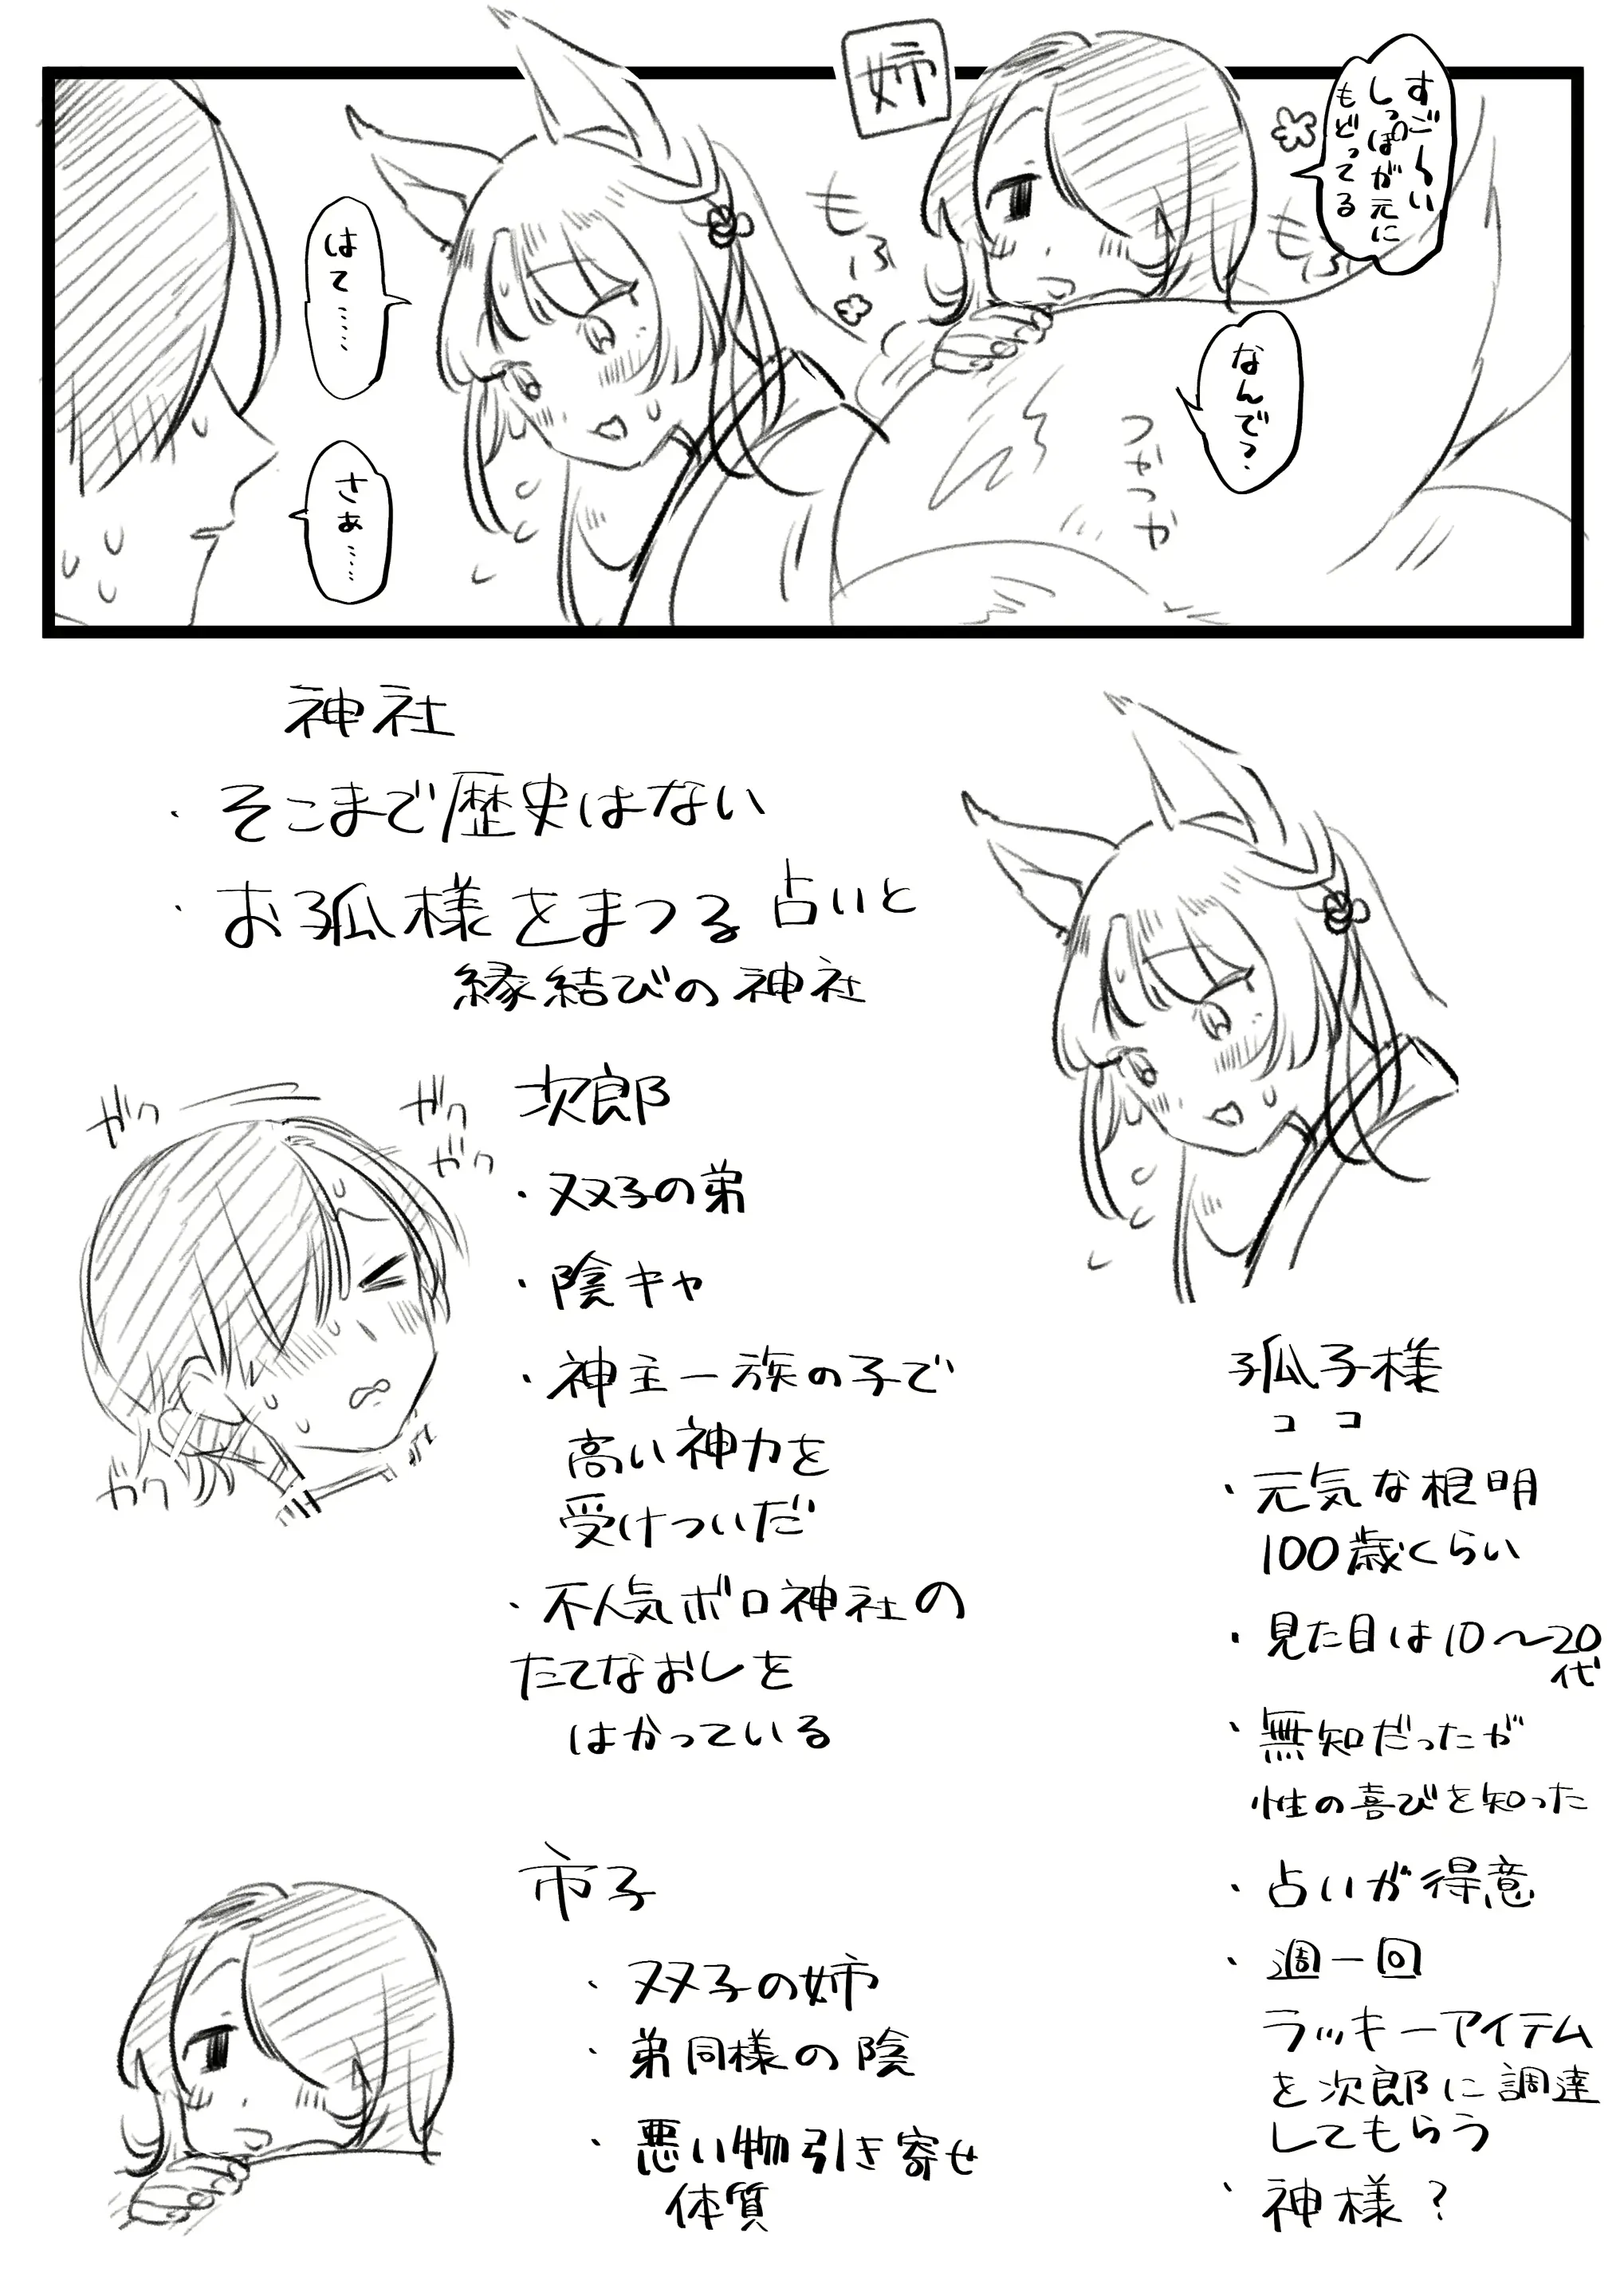 すご〜い
しっぽが元に
もどってる
姉
もふ
もふ
なんで？
つやつや
はて……
さぁ……
神社
・そこまで歴史はない
・お狐様をまつる占いと
縁結びの神社
次郎
ガク
ガク
ガク
ガク
・双子の弟
・陰キャ
・神主一族の子で
高い神力を
受けついだ
・不人気ボロ神社の
たてなおしを
はかっている
市子
・双子の姉
・弟同様の陰
・悪い物引き寄せ
体質
狐子様
ココ
・元気な根明
100歳くらい
・見た目は10〜20
代
・無知だったが
性の喜びを知った
・占いが得意
・週一回
ラッキーアイテム
を次郎に調達
してもらう
・神様？